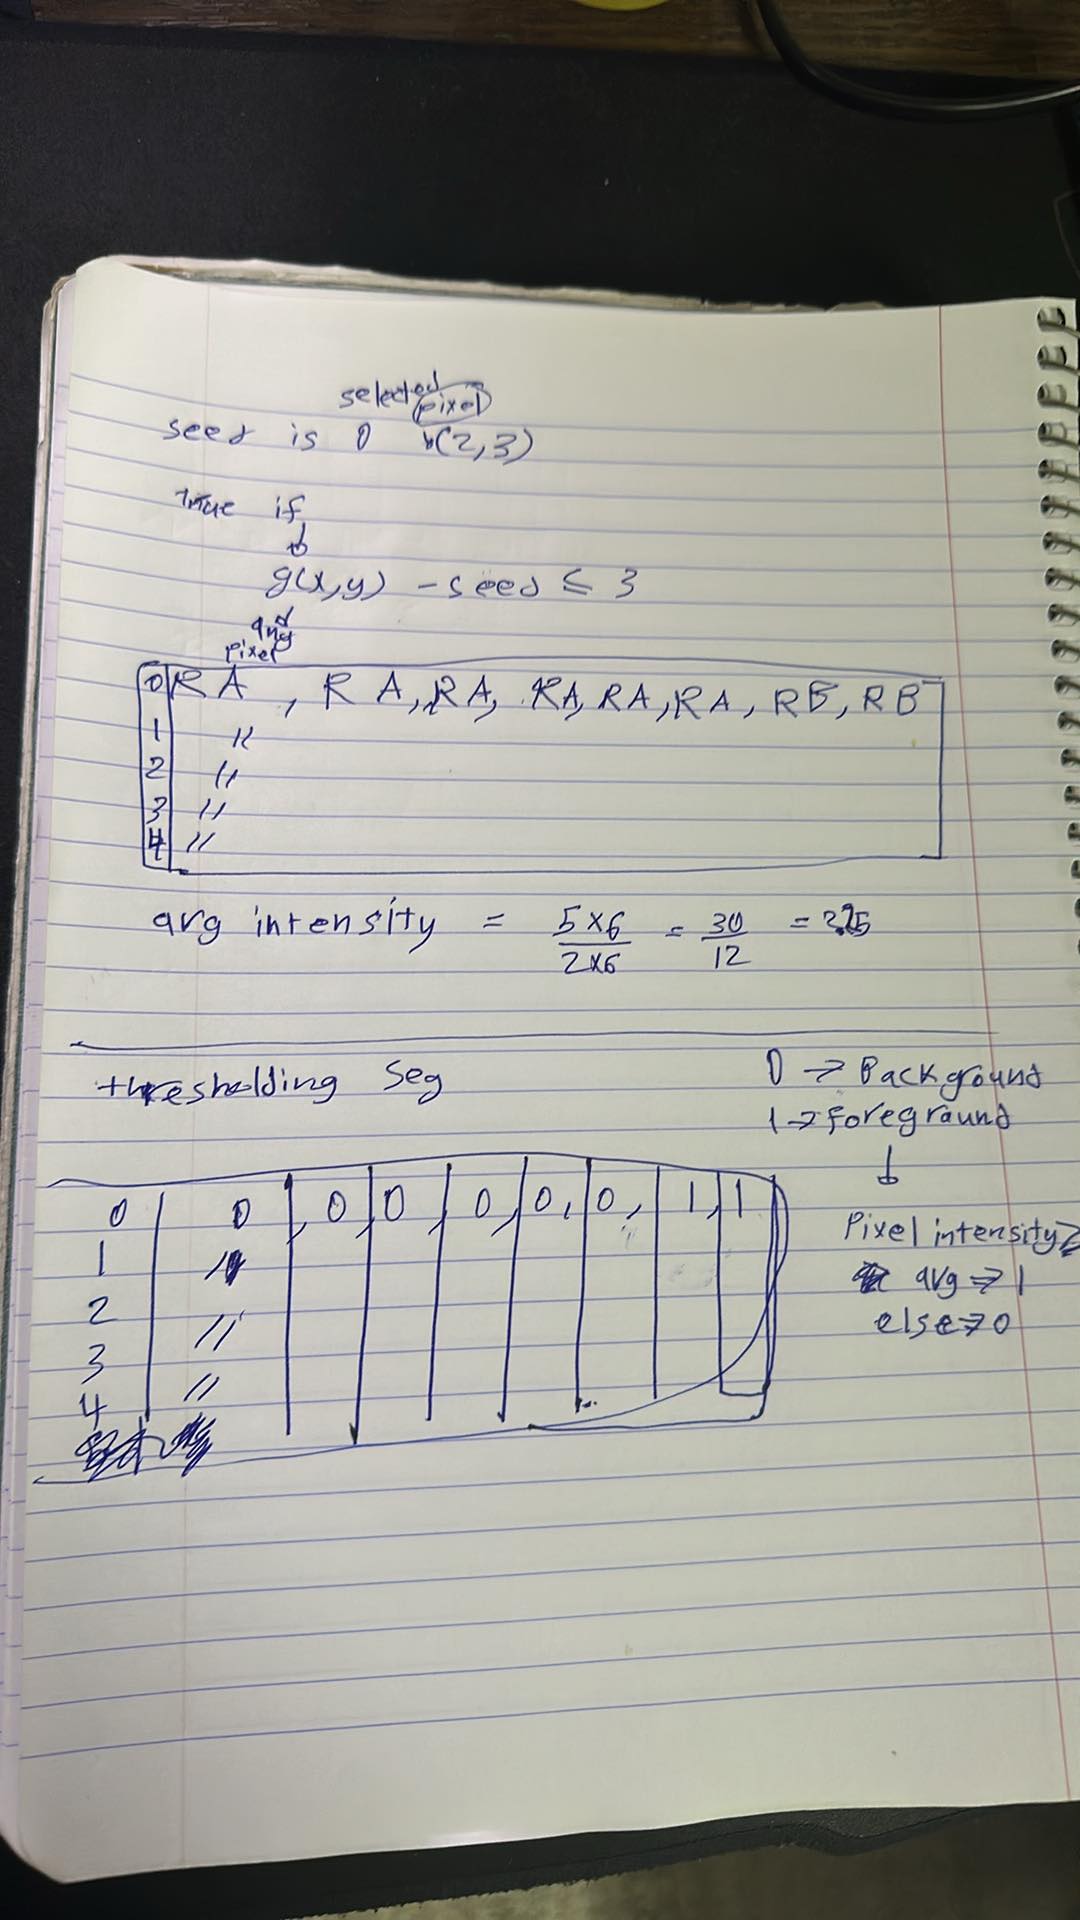 selected
pixel
seed is 0 (2,3)
true if
g(x,y) - seed ≤ 3
any
pixel
0 RA, RA, RA, RA, RA, RA, RB, RB
1 "
2 "
3 "
4 "
avg intensity = 5x6 / 2x6 = 30 / 12 =
thresholding seg
0 → Background
1 → foreground
0 0, 0, 0, 0, 0, 0, 1, 1
1 "
2 "
3 "
4
pixel intensity ≥
avg ⇒ 1
else ⇒ 0